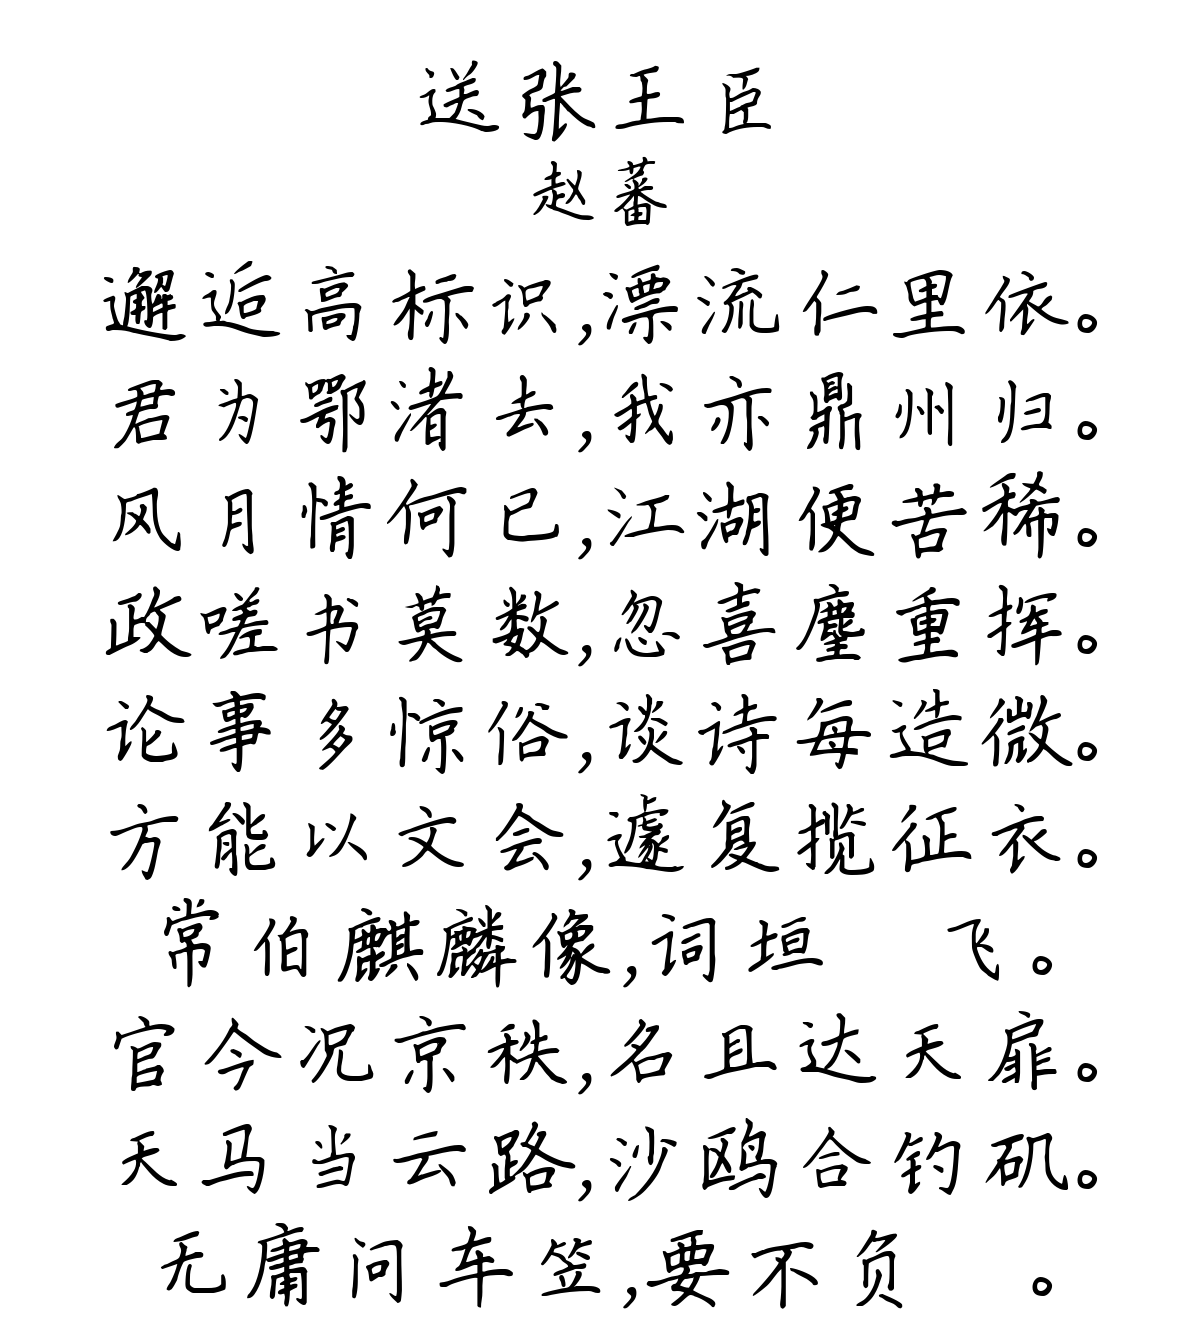 送张王臣
赵蕃
邂逅高标识,漂流仁里依。
君为鄂渚去,我亦鼎州归。
风月情何已,江湖便苦稀。
政嗟书莫数,忽喜麈重挥。
论事多惊俗,谈诗每造微。
方能以文会,遽复揽征衣。
常伯麒麟像,词垣 飞。
官今况京秩,名且达天扉。
天马当云路,沙鸥合钓矶。
无庸问车笠,要不负 。